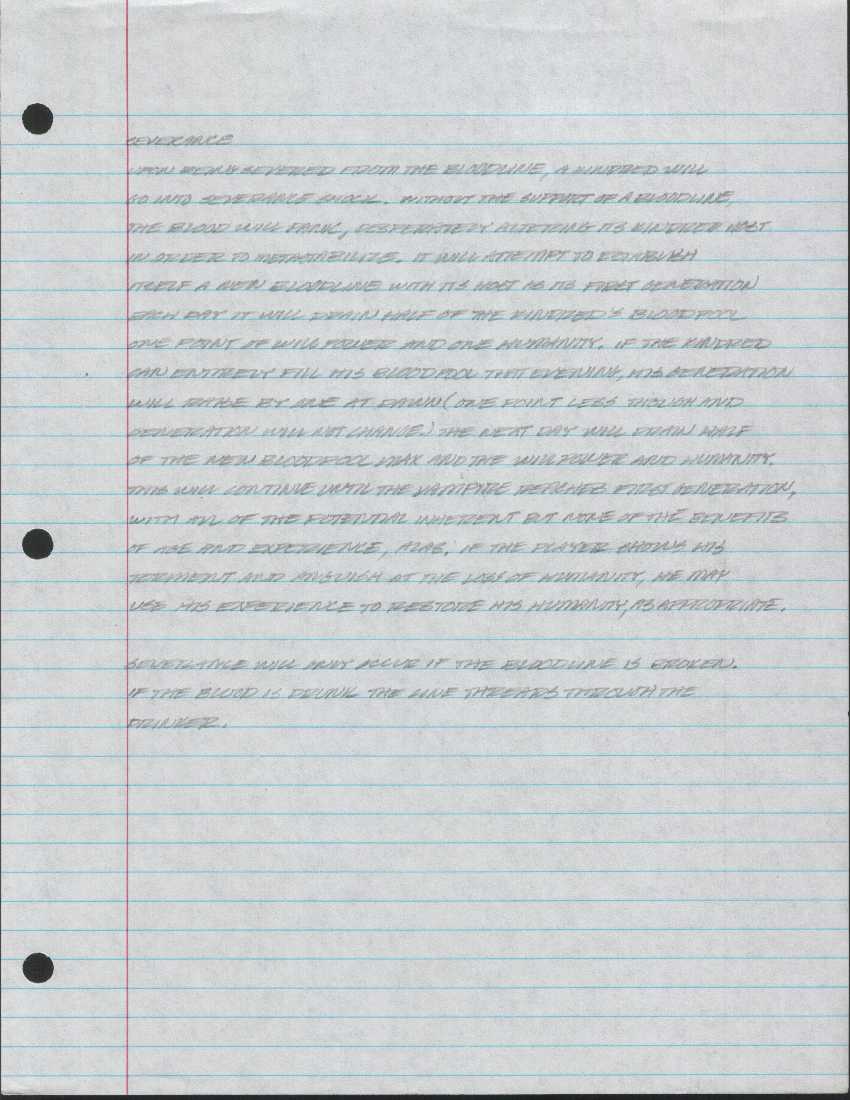 SEVERANCE
UPON BEING SEVERED FROM THE BLOODLINE, A KINDRED WILL
GO INTO SEVERANCE SHOCK. WITHOUT THE SUPPORT OF A BLOODLINE,
THE BLOOD WILL PANIC, DESPERATELY ALTERING ITS KINDRED HOST
IN ORDER TO METASTABILIZE. IT WILL ATTEMPT TO ESTABLISH
ITSELF A NEW BLOODLINE WITH ITS HOST AS ITS FIRST GENERATION
EACH DAY IT WILL DRAIN HALF OF THE KINDRED'S BLOODPOOL
ONE POINT OF WILLPOWER AND ONE HUMANITY. IF THE KINDRED
CAN ENTIRELY FILL HIS BLOODPOOL THAT EVENING, HIS GENERATION
WILL RAISE BY ONE AT DAWN (ONE POINT LESS THOUGH AND
GENERATION WILL NOT CHANGE.) THE NEXT DAY WILL DRAIN HALF
OF THE NEW BLOODPOOL MAX AND THE WILLPOWER AND HUMANITY.
THIS WILL CONTINUE UNTIL THE VAMPIRE REACHES FIRST GENERATION,
WITH ALL OF THE POTENTIAL INHERENT BUT NONE OF THE BENEFITS
OF AGE AND EXPERIENCE, ALAS. IF THE PLAYER SHOWS HIS
TORMENT AND ANGUISH AT THE LOSS OF HUMANITY, HE MAY
USE HIS EXPERIENCE TO RESTORE HIS HUMANITY, AS APPROPRIATE.
SEVERANCE WILL ONLY OCCUR IF THE BLOODLINE IS BROKEN.
IF THE BLOOD IS DRUNK THE LINE THREADS THROUGH THE
DRINKER.